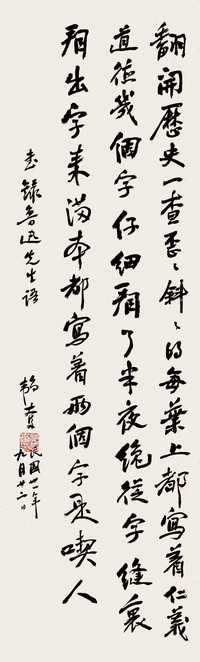 翻開歷史一查歪歪斜斜的每葉上都寫着仁義
道德幾個字仔細看了半夜纔從字縫裏
看出字來滿本都寫着兩個字是喫人
書錄魯迅先生語
民國廿一年
九月廿二日